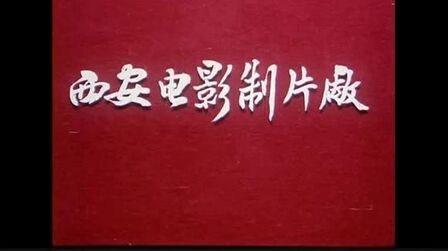 西安电影制片厰